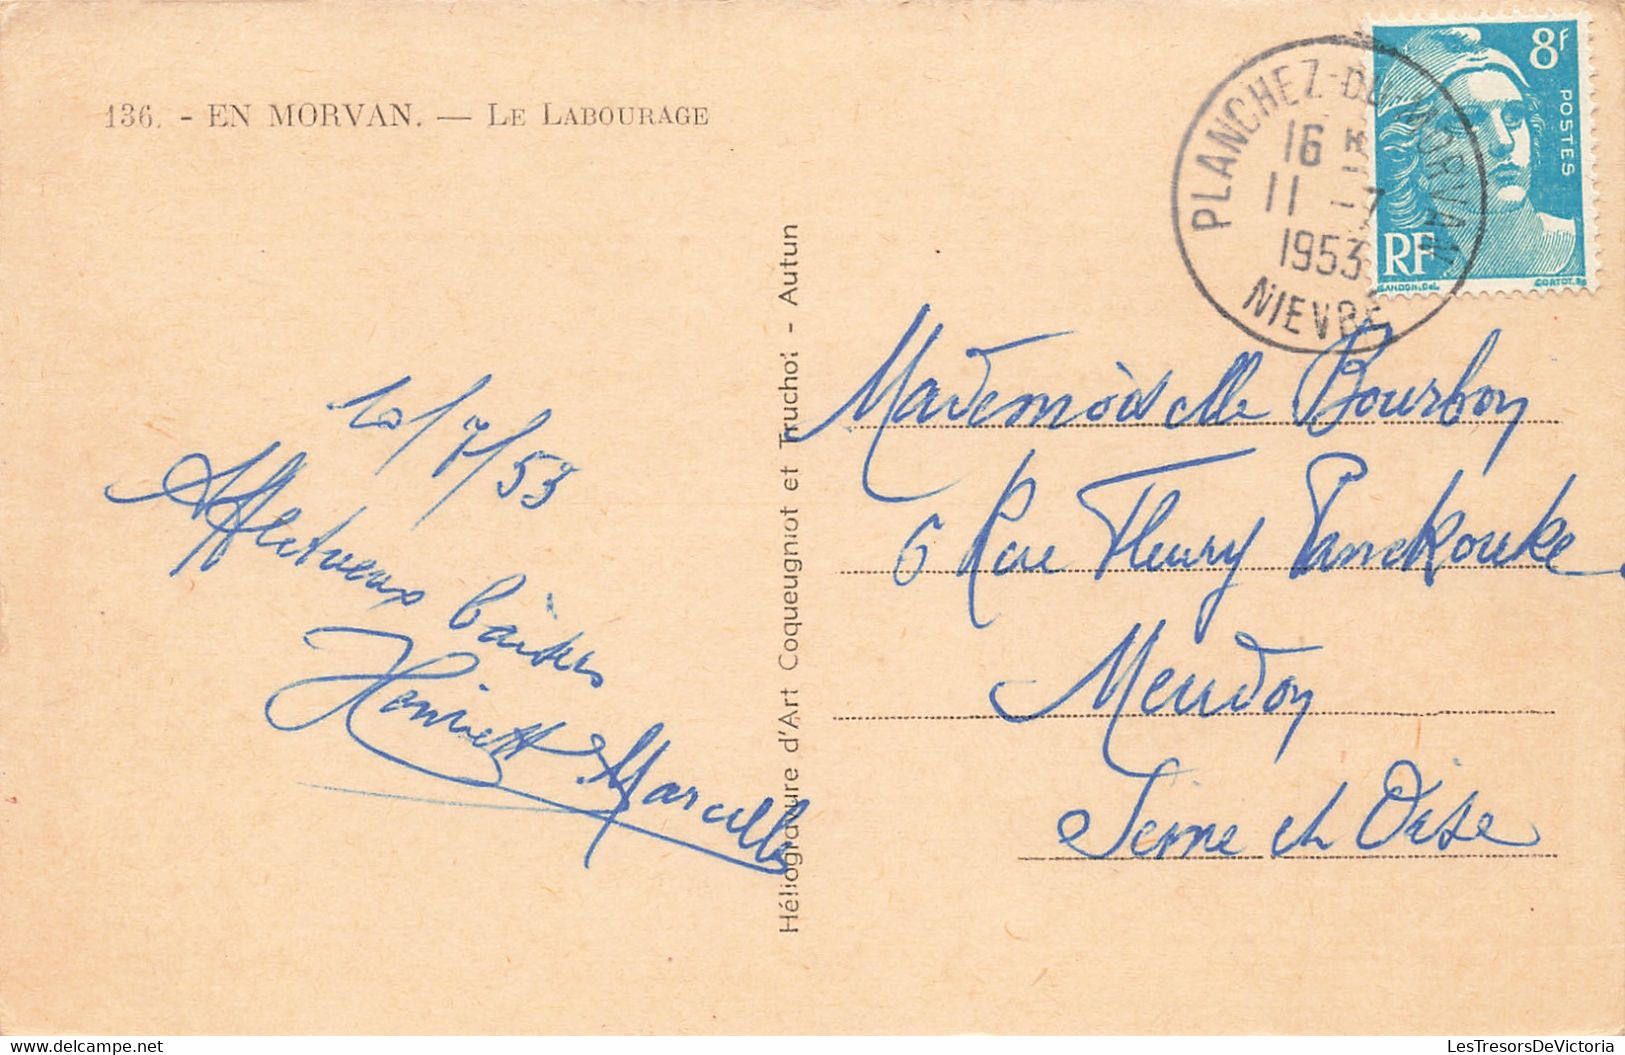 136. - EN MORVAN. — LE LABOURAGE
PLANCHEZ-DU-MORVAN
16 H
11 -7
1953
NIEVRE
8F
POSTES
RF
GANDON.Del.
CORTOT.Sc
10/7/53
Affectueux baisers
Henriette Marcelle
Héliogravure d'Art Coqueugniot et Truchot - Autun
Mademoiselle Bourbon
6 Rue Fleury Panckouke
Meudon
Seine et Oise
delcampe.net
LesTresorsDeVictoria